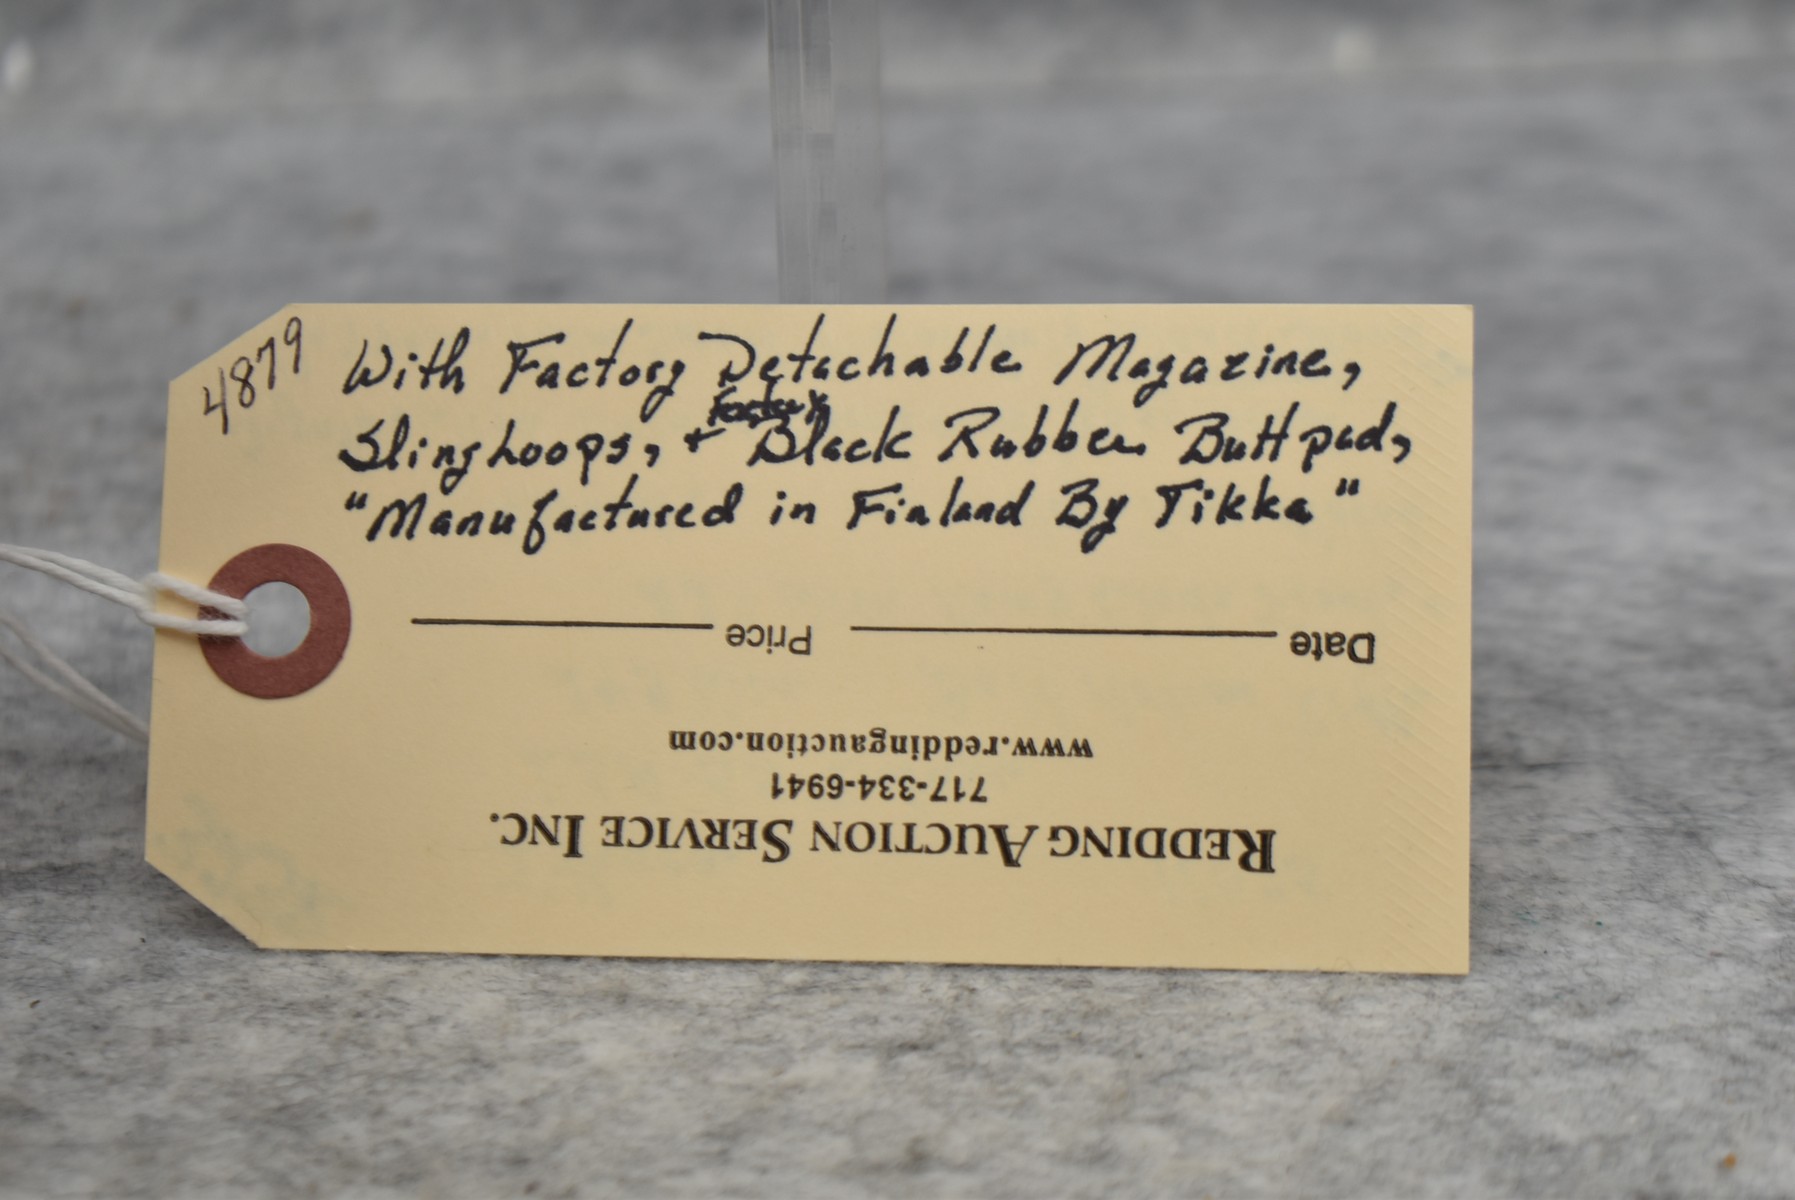 4879
With Factory Detachable Magazine,
Sling hoops, + factory Black Rubber Butt pad,
"Manufactured in Finland By Tikka"
REDDING AUCTION SERVICE INC.
717-334-6941
www.reddingauction.com
Date Price